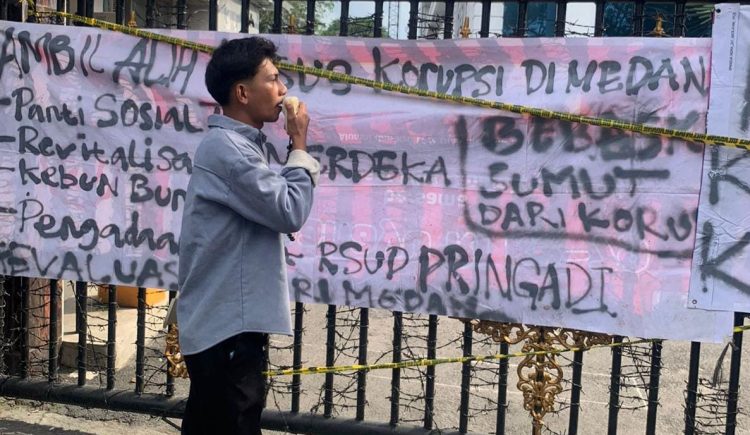 AMBIL ALIH SUS KORUPSI DI MEDAN
- Panti Sosial
- Revitalisa MERDEKA
- Kebun Bun
- Pengadaa RSUD PRINGADI
EVALUAS RI MEDAN
BEBASK
SUMUT
DARI KORU